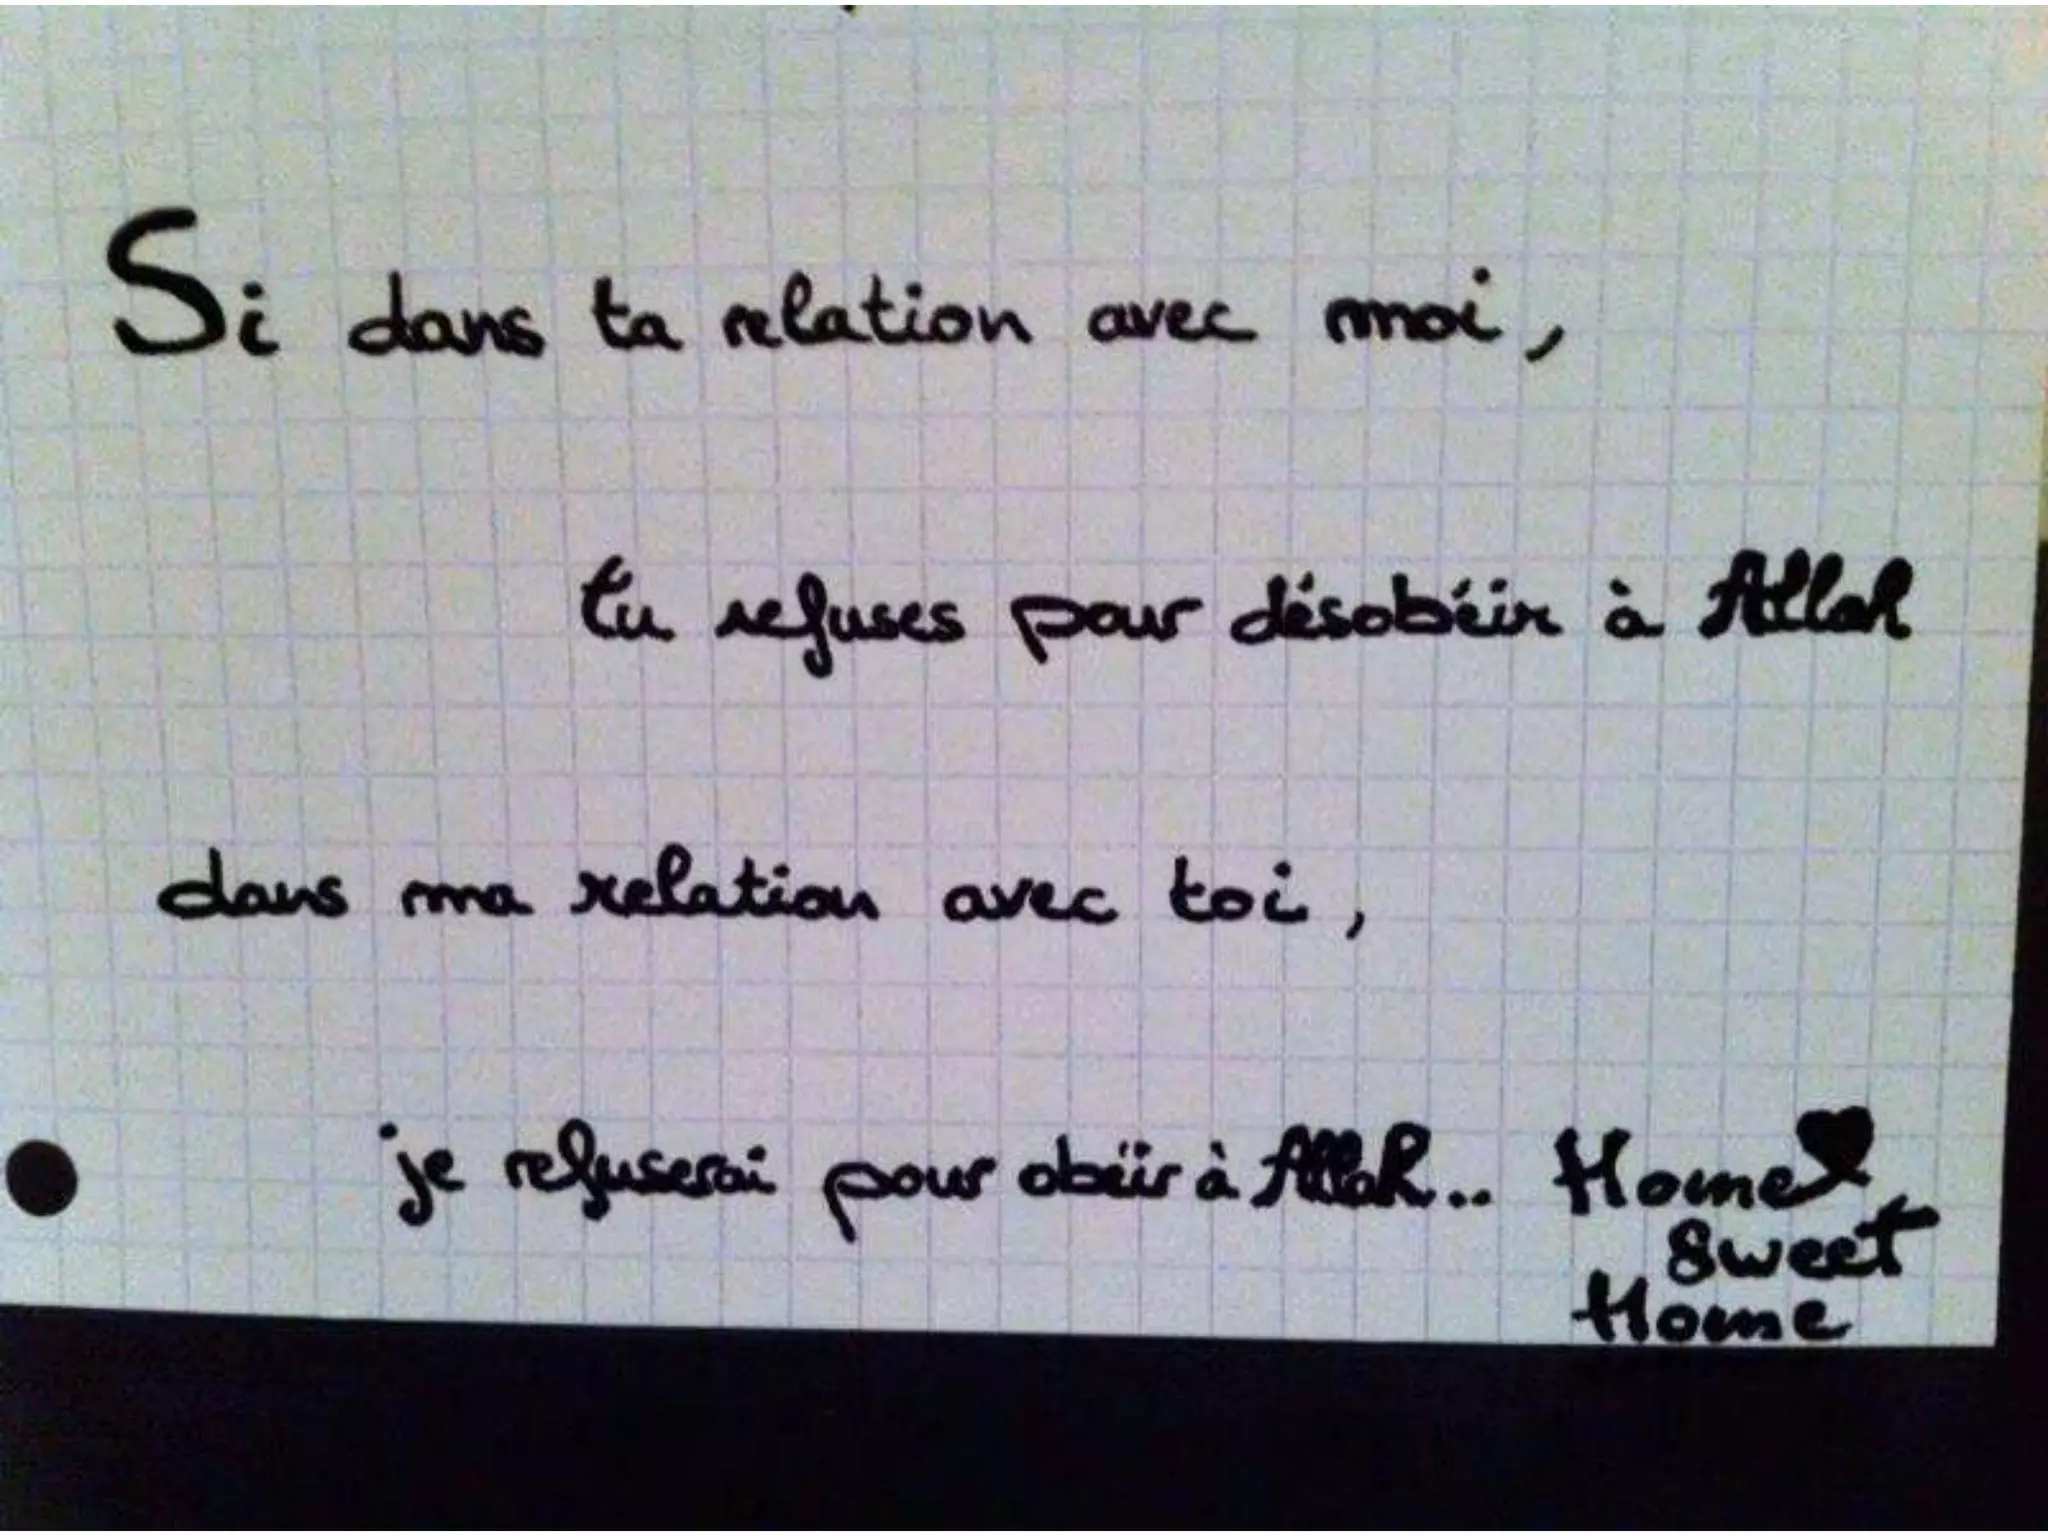 Si dans ta relation avec moi,
tu refuses pour désobéir à Allah
dans ma relation avec toi,
je refuserai pour obéir à Allah.. Home
Sweet
Home